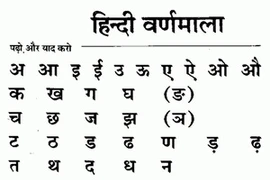 हिन्दी वर्णमाला
पढ़ो और याद करो
अ आ इ ई उ ऊ ए ऐ ओ औ
क ख ग घ (ङ)
च छ ज झ (ञ)
ट ठ ड ढ ण ड़ ढ़
त थ द ध न